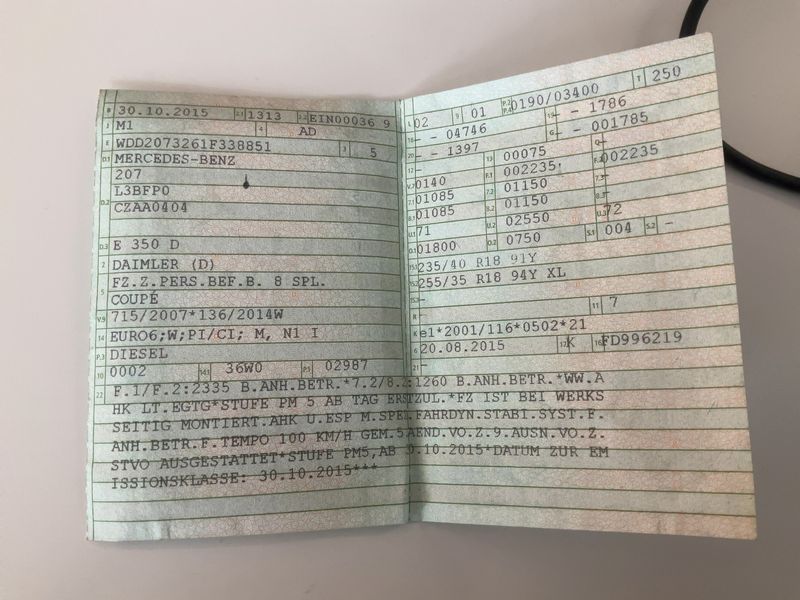 B 30.10.2015 2.1 1313 2.2 EIN00036 9
J M1 4 AD
E WDD2073261F338851 3 5
D.1 MERCEDES-BENZ
207
D.2 L3BFP0
CZAA0404
D.3 E 350 D
2 DAIMLER (D)
5 FZ.Z.PERS.BEF.B. 8 SPL.
COUPÉ
V.9 715/2007*136/2014W
14 EURO6;W;PI/CI; M, N1 I
P.3 DIESEL
10 0002 14.1 36W0 P.1 02987
L 02 9 01 P.2 P.4 0190/03400 T 250
18 - - 04746 19 - - 1786
20 - - 1397 G - - 001785
12 - 13 00075 Q -
V.7 0140 F.1 002235 F.2 002235
7.1 01085 7.2 01150 7.3 -
8.1 01085 8.2 01150 8.3 -
U.1 71 U.2 02550 U.3 72
O.1 01800 O.2 0750 S.1 004 S.2 -
15.1 235/40 R18 91Y
15.2 255/35 R18 94Y XL
15.3 -
R - 11 7
K e1*2001/116*0502*21
6 20.08.2015 17 K 16 FD996219
21 -
22 F.1/F.2:2335 B.ANH.BETR.*7.2/8.2:1260 B.ANH.BETR.*WW.A
HK LT.EGTG*STUFE PM 5 AB TAG ERSTZUL.*FZ IST BEI WERKS
SEITIG MONTIERT.AHK U.ESP M.SPEI FAHRDYN.STABI.SYST.F.
ANH.BETR.F.TEMPO 100 KM/H GEM.5 AEND.VO.Z.9.AUSN.VO.Z.
STVO AUSGESTATTET*STUFE PM5,AB 30.10.2015*DATUM ZUR EM
ISSIONSKLASSE: 30.10.2015***